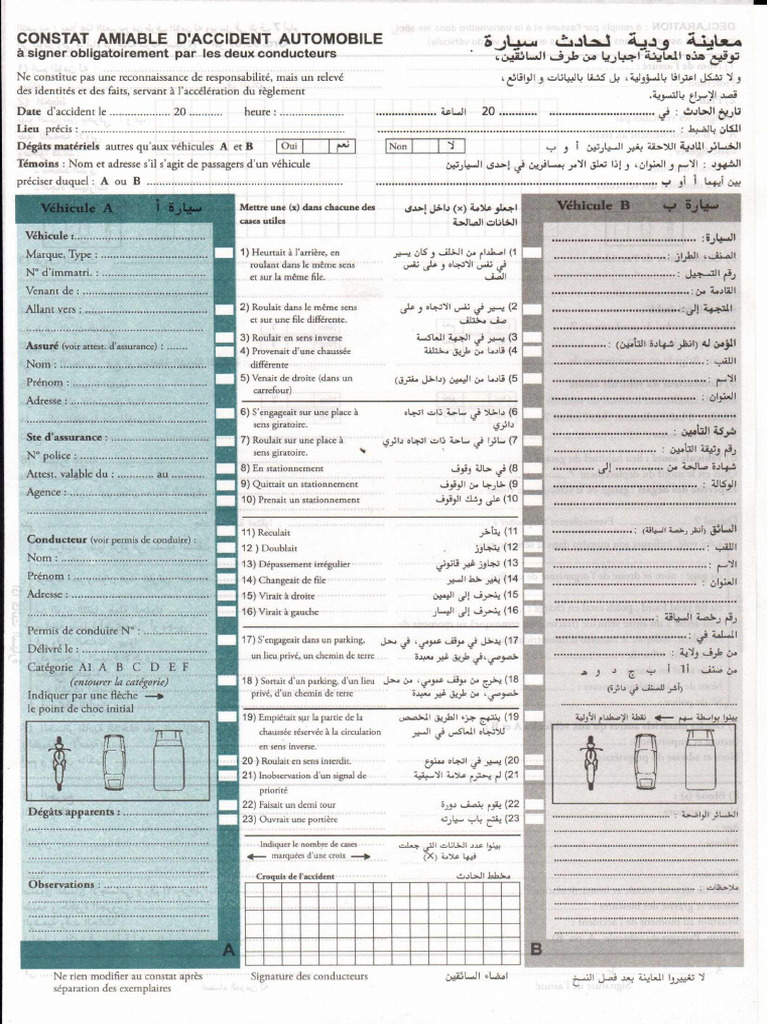 CONSTAT AMIABLE D'ACCIDENT AUTOMOBILE
à signer obligatoirement par les deux conducteurs
معاينة ودية لحادث سيارة
توقيع هذه المعاينة اجباريا من طرف السائقين،
Ne constitue pas une reconnaissance de responsabilité, mais un relevé
des identités et des faits, servant à l'accélération du règlement
و لا تشكل اعترافا بالمسؤولية، بل كشفا بالبيانات و الوقائع،
قصد الإسراع بالتسوية.
Date d'accident le .................. 20 ........... heure : ..................
تاريخ الحادث : في .................. 20 ........... الساعة ..................
Lieu précis : ..................
المكان بالضبط : ..................
Dégâts matériels autres qu'aux véhicules A et B Oui نعم Non لا
الخسائر المادية اللاحقة بغير السيارتين أ و ب
Témoins : Nom et adresse s'il s'agit de passagers d'un véhicule
préciser duquel : A ou B ..................
الشهود : الاسم و العنوان، و إذا تعلق الامر بمسافرين في إحدى السيارتين
بين أيهما أ أو ب ..................
Véhicule A سيارة أ
Véhicule :..................
Marque, Type : ..................
N° d'immatri. : ..................
Venant de : ..................
Allant vers : ..................
Assuré (voir attest. d'assurance) : .......
Nom : ..................
Prénom : ..................
Adresse : ..................
Ste d'assurance : ..................
N° police : ..................
Attest. valable du : ........... au ...........
Agence : ..................
Conducteur (voir permis de conduire) :
Nom : ..................
Prénom : ..................
Adresse : ..................
Permis de conduire N° : ..................
Délivré le : ..................
Catégorie A1 A B C D E F
(entourer la catégorie)
Indiquer par une flèche →
le point de choc initial
Dégâts apparents : ..................
Observations : ..................
A
Mettre une (x) dans chacune des
cases utiles
اجعلو علامة (x) داخل إحدى
الخانات الصالحة
1) Heurtait à l'arrière, en
roulant dans le même sens
et sur la même file.
1) اصطدام من الخلف و كان يسير
في نفس الاتجاه و على نفس
الصف
2) Roulait dans le même sens
et sur une file différente.
2) يسير في نفس الاتجاه و على
صف مختلف
3) Roulait en sens inverse
3) يسير في الجهة المعاكسة
4) Provenait d'une chaussée
différente
4) قادما من طريق مختلفة
5) Venait de droite (dans un
carrefour)
5) قادما من اليمين (داخل مفترق)
6) S'engageait sur une place à
sens giratoire.
6) داخلا في ساحة ذات اتجاه
دائري
7) Roulait sur une place à
sens giratoire.
7) سائرا في ساحة ذات اتجاه دائري
8) En stationnement
8) في حالة وقوف
9) Quittait un stationnement
9) خارجا من الوقوف
10) Prenait un stationnement
10) على وشك الوقوف
11) Reculait
11) يتأخر
12 ) Doublait
12) يتجاوز
13) Dépassement irrégulier
13) تجاوز غير قانوني
14) Changeait de file
14) يغير خط السير
15) Virait à droite
15) ينحرف إلى اليمين
16) Virait à gauche
16) ينحرف إلى اليسار
17) S'engageait dans un parking,
un lieu privé, un chemin de terre
17) يدخل في موقف عمومي، في محل
خصوصي،في طريق غير معبدة
18 ) Sortait d'un parking, d'un lieu
privé, d'un chemin de terre
18) يخرج من موقف عمومي، من محل
خصوصي، من طريق غير معبدة
19) Empiétait sur la partie de la
chaussée réservée à la circulation
en sens inverse.
19) ينتهج جزء الطريق المخصص
للاتجاه المعاكس في السير
20 ) Roulait en sens interdit.
20) يسير في اتجاه ممنوع
21) Inobservation d'un signal de
priorité
21) لم يحترم علامة الاسبقية
22) Faisait un demi tour
22) يقوم بنصف دورة
23) Ouvrait une portière
23) يفتح باب سيارته
Indiquer le nombre de cases
← marquées d'une croix →
بينوا عدد الخانات التي جعلت
فيها علامة (X)
Croquis de l'accident
مخطط الحادث
Véhicule B سيارة ب
السيارة: ..................
الصنف، الطراز : ..................
رقم التسجيل : ..................
القادمة من: ..................
المتجهة إلى: ..................
المؤمن له (انظر شهادة التأمين): ...........
اللقب : ..................
الاسم : ..................
العنوان : ..................
شركة التأمين : ..................
رقم وثيقة التأمين : ..................
شهادة صالحة من ........... إلى ...........
الوكالة : ..................
السائق (أنظر رخصة السياقة) : ...........
اللقب : ..................
الإسم : ..................
العنوان : ..................
رقم رخصة السياقة : ..................
المسلمة في : ..................
من طرف ولاية : ..................
من صنف أ1 أ ب ج د و هـ
(أشر للصنف في دائرة)
بينوا بواسطة سهم ← نقطة الإصطدام الأولية
الخسائر الواضحة : ..................
ملاحظات : ..................
B
Ne rien modifier au constat après
séparation des exemplaires
Signature des conducteurs
امضاء السائقين
لا تغييروا المعاينة بعد فصل النسخ